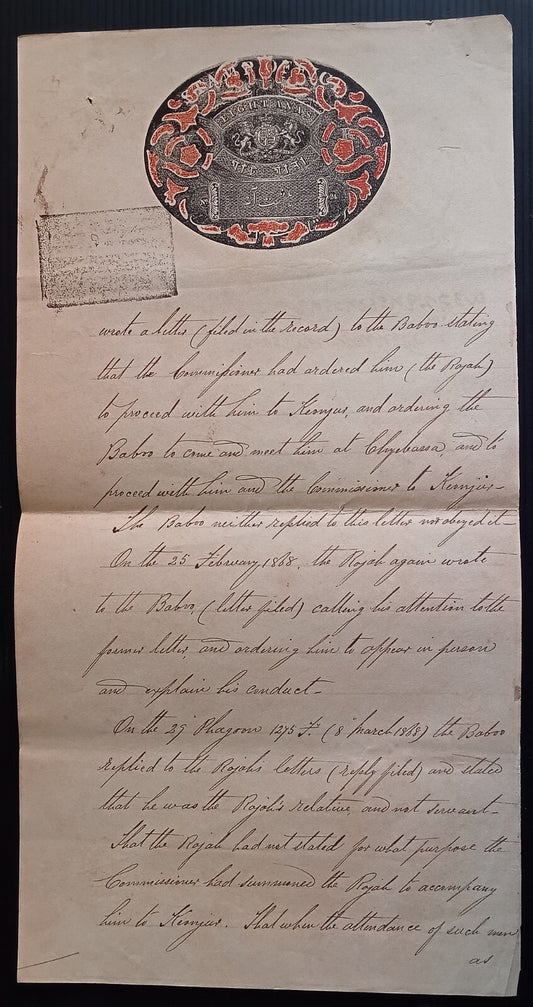 EIGHT ANAS
wrote a letter (filed in the record) to the Baboo stating
that the Commissioner had ordered him (the Rajah)
to proceed with him to Keonjur, and ordering the
Baboo to come and meet him at Chyebassa, and to
proceed with him and the Commissioner to Keonjur –
The Baboo neither replied to this letter nor obeyed it –
On the 25 February 1868, the Rajah again wrote
to the Baboo, (letter filed) calling his attention to the
former letter, and ordering him to appear in person
and explain his conduct –
On the 29 Phagoon 1275 F. (8 March 1868) the Baboo
replied to the Rajah's letters (reply filed) and stated
that he was the Rajah's relative and not servant –
That the Rajah had not stated for what purpose the
Commissioner had summoned the Rajah to accompany
him to Keonjur. That when the attendance of such men
as